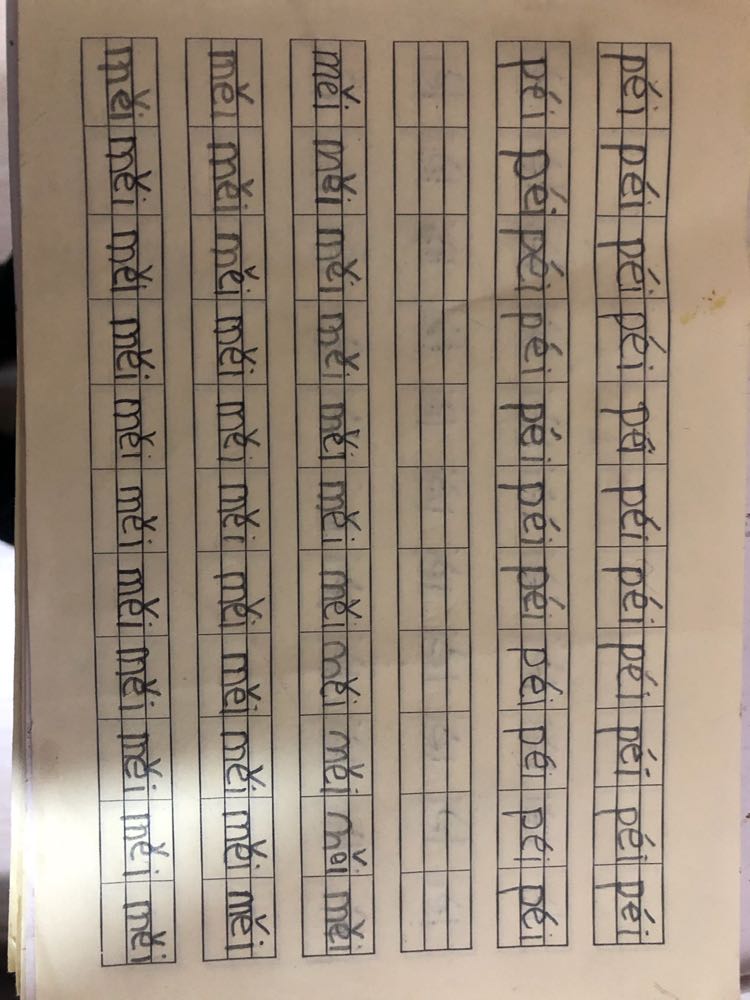 péi péi péi péi péi péi péi péi péi péi péi
péi péi péi péi péi péi péi péi péi péi péi
měi měi měi měi měi měi měi měi měi měi měi
měi měi měi měi měi měi měi měi měi měi měi
měi měi měi měi měi měi měi měi měi měi měi